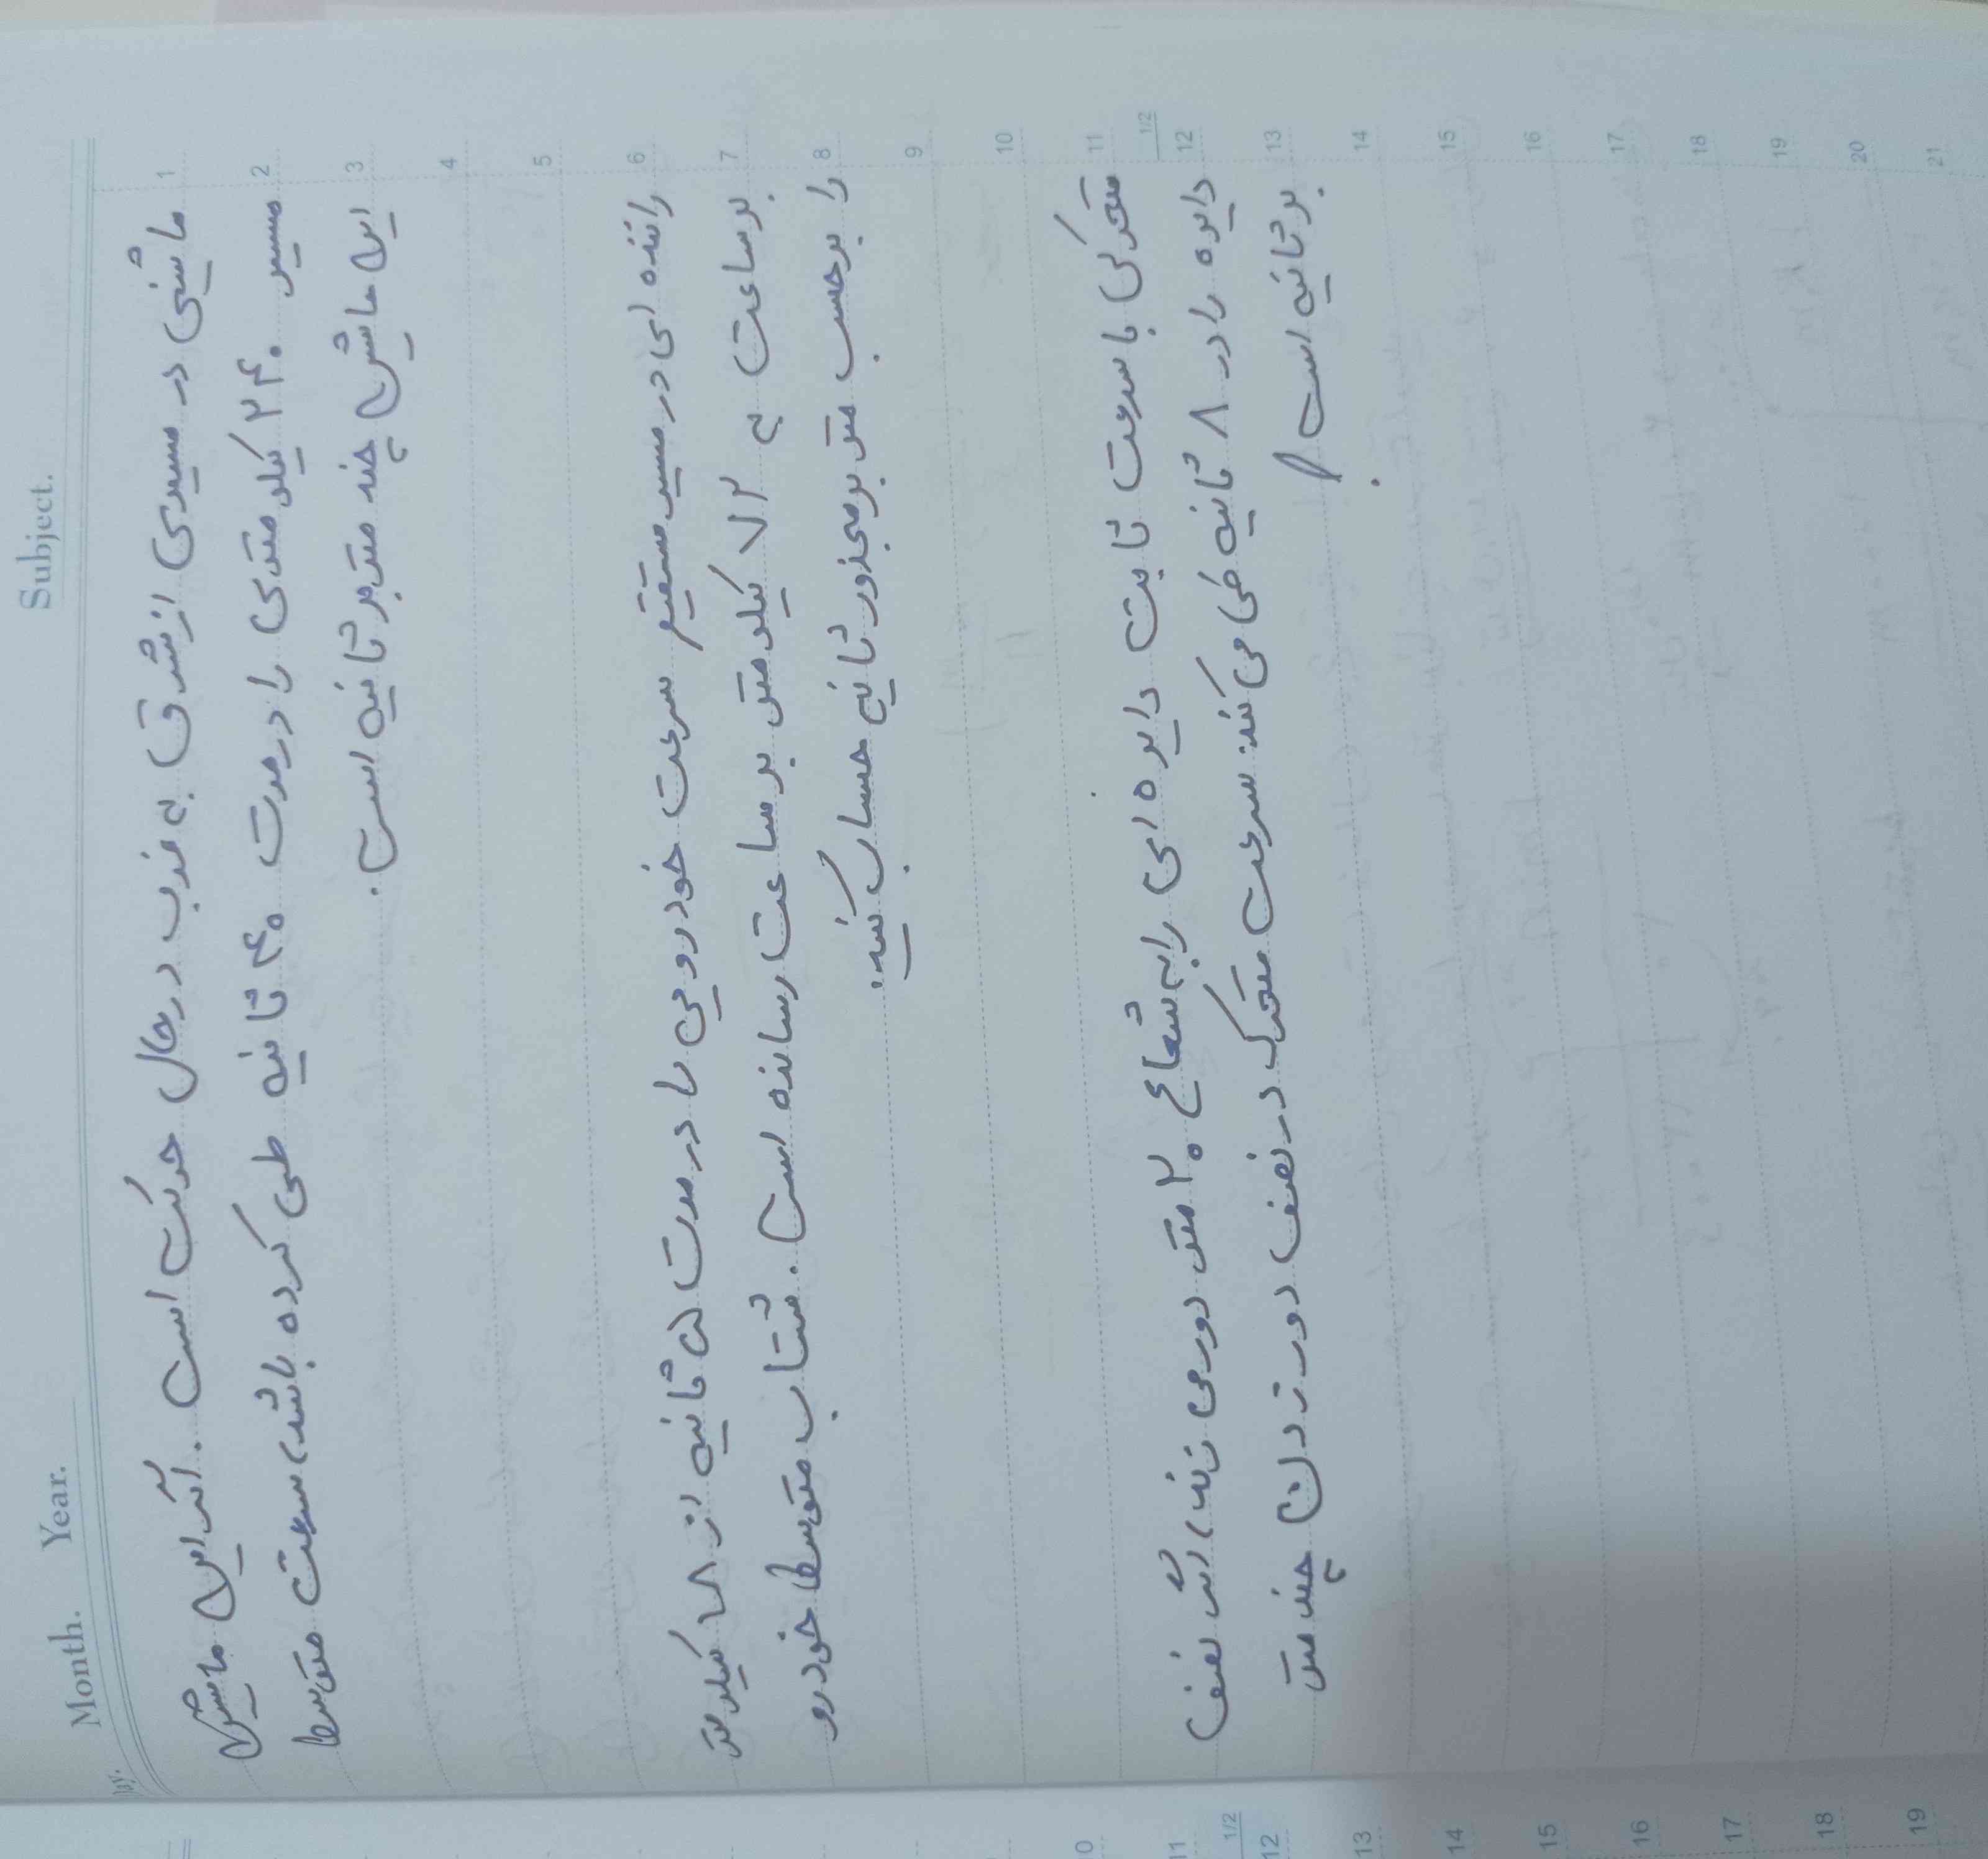 Subject.
Month. Year.
ماشینی در مسیری از شرق به غرب در حال حرکت است. اگر این ماشین
مسیر ۲۴۰ کیلومتری را در مدت ۴۰ ثانیه طی کرده باشد، سرعت متوسط
این ماشین چند متر بر ثانیه است.
راننده ای در مسیر مستقیم سرعت خودرویی را در مدت ۵ ثانیه از ۱۸ کیلومتر
بر ساعت به ۷۲ کیلومتر بر ساعت رسانده است. شتاب متوسط خودرو
را برحسب متر بر مجذور ثانیه حساب کنید.
متحرکی با سرعت ثابت دایره ای را به شعاع ۲۰ متر دور می زند، اگر نصف
دایره را در ۸ ثانیه طی می کند سرعت متحرک در نصف دور زدن چند متر
بر ثانیه است؟
1
2
3
4
5
6
7
8
9
10
11
1/2
12
13
14
15
16
17
18
19
20
21
11
1/2
12
13
14
15
16
17
18
19